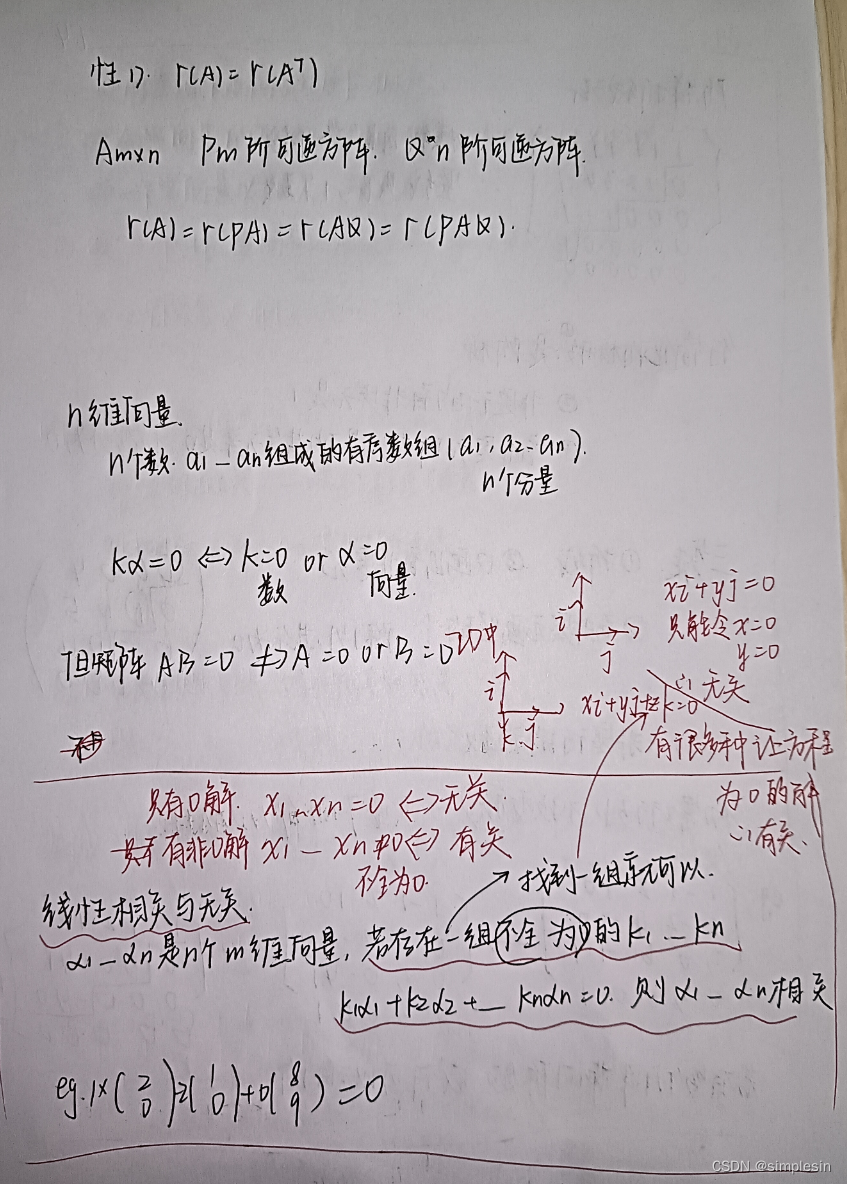 性1). r(A)=r(A^T)
Am×n Pm阶可逆方阵. Q n阶可逆方阵.
r(A)=r(PA)=r(AQ)=r(PAQ).
n维向量.
n个数. a1 — an组成的有序数组(a1, a2 - an).
n个分量
kα=0 ⇔ k=0 or α=0
数 向量.
但矩阵 AB=0 ⇏ A=0 or B=0
xi+yj=0
只能令 x=0
y=0
∴无关
i
j
2D中
i
k j
xi+yj+zk=0
有很多种让方程
为0的解
∴有关.
只有0解. x1 ... xn=0 ⇔无关.
有非0解 x1 — xn ≠0⇔ 有关
不全为0.
找到一组就可以.
线性相关与无关.
α1 — αn是n个m维向量, 若存在一组不全为0的k1 ... kn
k1α1+k2α2+ — knαn=0. 则α1 — αn相关
eg. 1×(2 0)-2(1 0)+0(8 9)=0
CSDN @simplesin